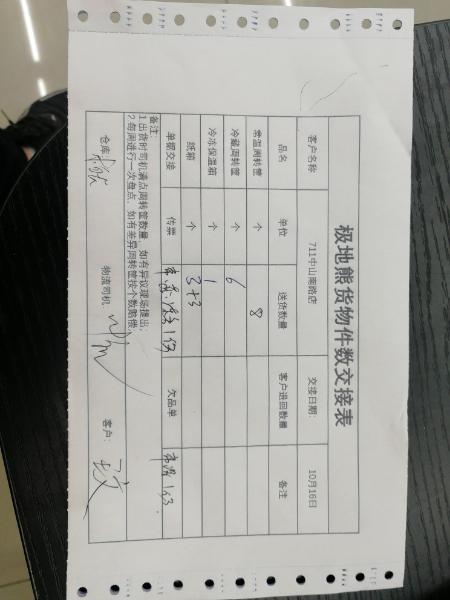 极地熊货物件数交接表
客户名称 711中山南路店 交接日期: 10月16日
品名 单位 送货数量 客户退回数量 备注
常温周转筐 个 8
冷藏周转筐 个 6
冷冻保温箱 个 1
纸箱 个 3+3
单据交接 传票 欠品单
备注:
1.出货时司机清点周转筐数量,如有异议现场提出;
2.每周进行一次盘点,如有差异周转筐按个数赔偿;
仓库: 物流司机: 客户: